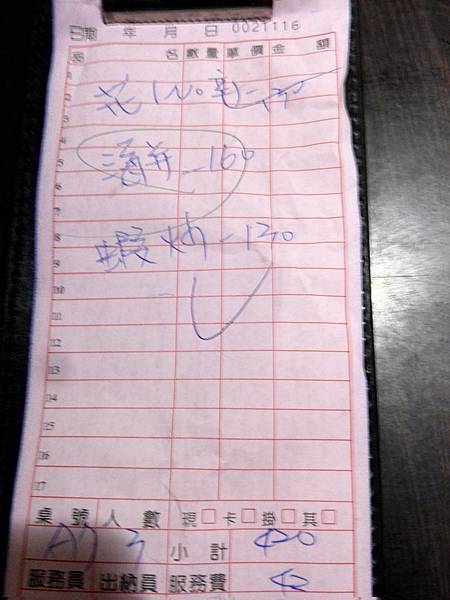 日期 年 月 日 0021116
品 名 數量 單價 金 額
1
2
3
4
海丼 - 160
5
6
7
8
蝦炒 - 130
9
10
11
12
13
14
15
16
17
桌 號 人 數 現 □ 卡 □ 掛 □ 其 □
3 小 計 420
服務員 出納員 服務費 42